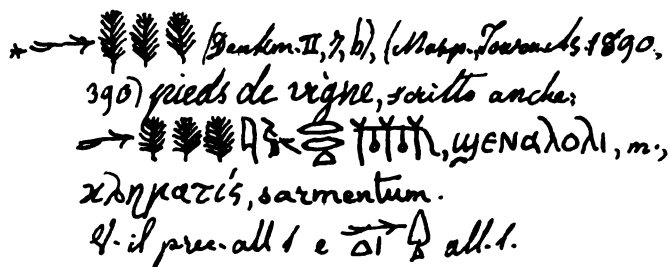 * (Denkm. II, 7, b), (Masp., Journ. As. 1890,
390) pieds de vigne, scritto anche:
, ϣⲉⲛⲁⲗⲟⲗⲓ, m.,
κληματίς, sarmentum.
V. il prec. all. 1 e all. 1.